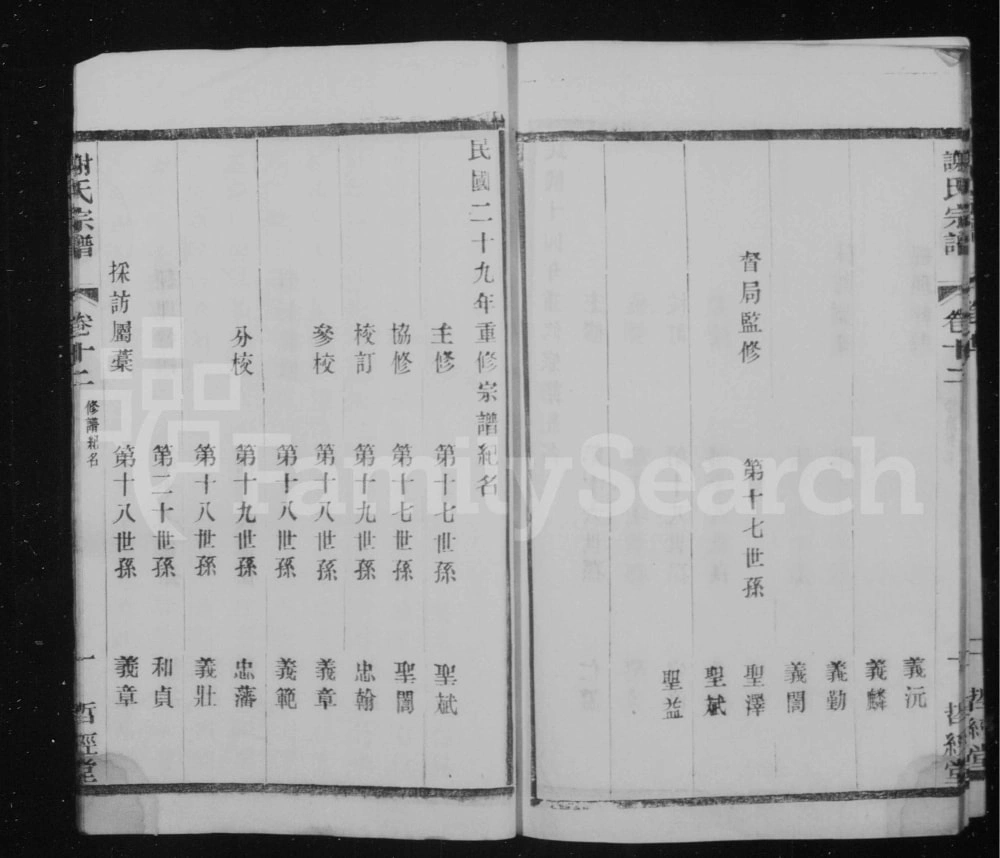 謝氏宗譜 卷十二 一 哲經堂
義沅
義麟
義勤
義闇
督局監修 第十七世孫 聖澤
聖斌
聖益
民國二十九年重修宗譜紀名
主修 第十七世孫 聖斌
協修 第十七世孫 聖闇
校訂 第十九世孫 忠翰
參校 第十八世孫 義章
第十八世孫 義範
分校 第十九世孫 忠藩
第十八世孫 義壯
第二十世孫 和貞
採訪屬藁 第十八世孫 義章
謝氏宗譜 卷十二 修譜紀名 一 哲經堂
FamilySearch